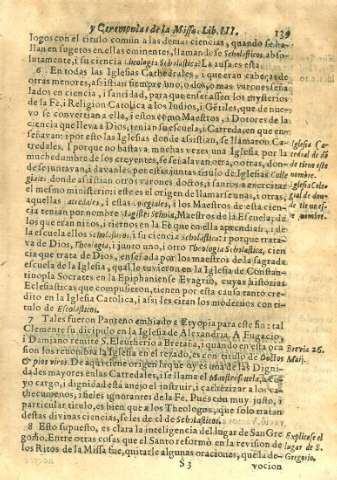 y Ceremonias de la Missa. Lib. III. 139
logos con el titulo comun a las demas ciencias, quando se ha-
llan en sugetos en ellas eminentes, llamandose Scholasticos abso-
lutamente, i su ciencia Theologia Scholastica: La causa es esta.
6 En todas las Iglesias Cathedrales, i que eran cabeças de
otras menores, assistian siempre uno, o dos, o mas varones seña
lados en ciencia, i santidad, para que enseñassen los mysterios
de la Fe, i Religion Catolica a los Indios, i Gentiles, que de nue-
vo se convertian a ella, i estos como Maestros, i Dotores de la
ciencia que lleva a Dios, tenian su escuela, i Catreda, en que en-
señavan: i por esto las Iglesias donde assistian, se llamaron Ca-
tredales. I porque no bastava muchas vezes una Iglesia por la
muchedumbre de los creyentes, se señalavan otra, o otras, don-
de se juntavan, i davanles por estas juntas titulo de Iglesias Colle
giales donde assistian otros varones doctos, i santos a exercitar
el mesmo ministerio: este es el origen de llamarse unas, i otras,
aquellas Catredales, i estas Collegiales, i los Maestros desta cien-
cia tenian por nombre Magistri Scholæ, Maestros de la Escuela; de
los que eran niños, i tiernos en la Fe que en ella aprendian, i de
la escuela ellos Scholasticos, i su ciencia Scholastica: i porque trata-
va de Dios, Theologia, i junto uno, i otro Theologia Scholastica, cien
cia que trata de Dios, enseñada por los maestros de la sagrada
escuela de la Iglesia, qual le tuvieron en la Iglesia de Constan-
tinopla Socrates en la Epiphaniense Evagrio, cuyas historias
Eclesiasticas que compusieron, tienen por esta causa tanto cre-
dito en la Iglesia Catolica, i assi les citan los modernos con ti-
tulo de Escolasticos.
7 Tales fueron Panteno embiado a Etyopia para este fin: tal
Clemente su dicipulo en la Iglesia de Alexandria. A Fugacio,
i Damiano remite S. Eleutherio a Bretaña, i quando en el a ocasi
on los renombra la Iglesia en el rezado, es con titulo de Doctos
y pios viros. De aqui tiene origen lo que oy es una de las Digni-
dades mayores en las Catredales, i se llama el Mastrescuela, a cu
yo cargo, i dignidad està anejo el instruir, i catechizar a los ca-
thecumenos, i fieles ignorantes de la Fe. Pues con muy justo, i
particular titulo, es bien que a los Theologos, que solo tratan
destas divinas ciencias, se les de el de Scholasticos.
8 Esto supuesto, es clara la inteligencia del lugar de San Gre
gorio. Entre otras cosas que el Santo reformò en la revision de
los Ritos de la Missa fue, quitarle algunas oraciones, que la de-
S 3 vocion
Iglesia Ca-
tredal de dõ
de tiene este
nombre.
Iglesia Cole
gial de don-
de tiene es-
te nombre.
Brevia 26.
Maij.
Explicase el
lugar de S.
Gregorio.